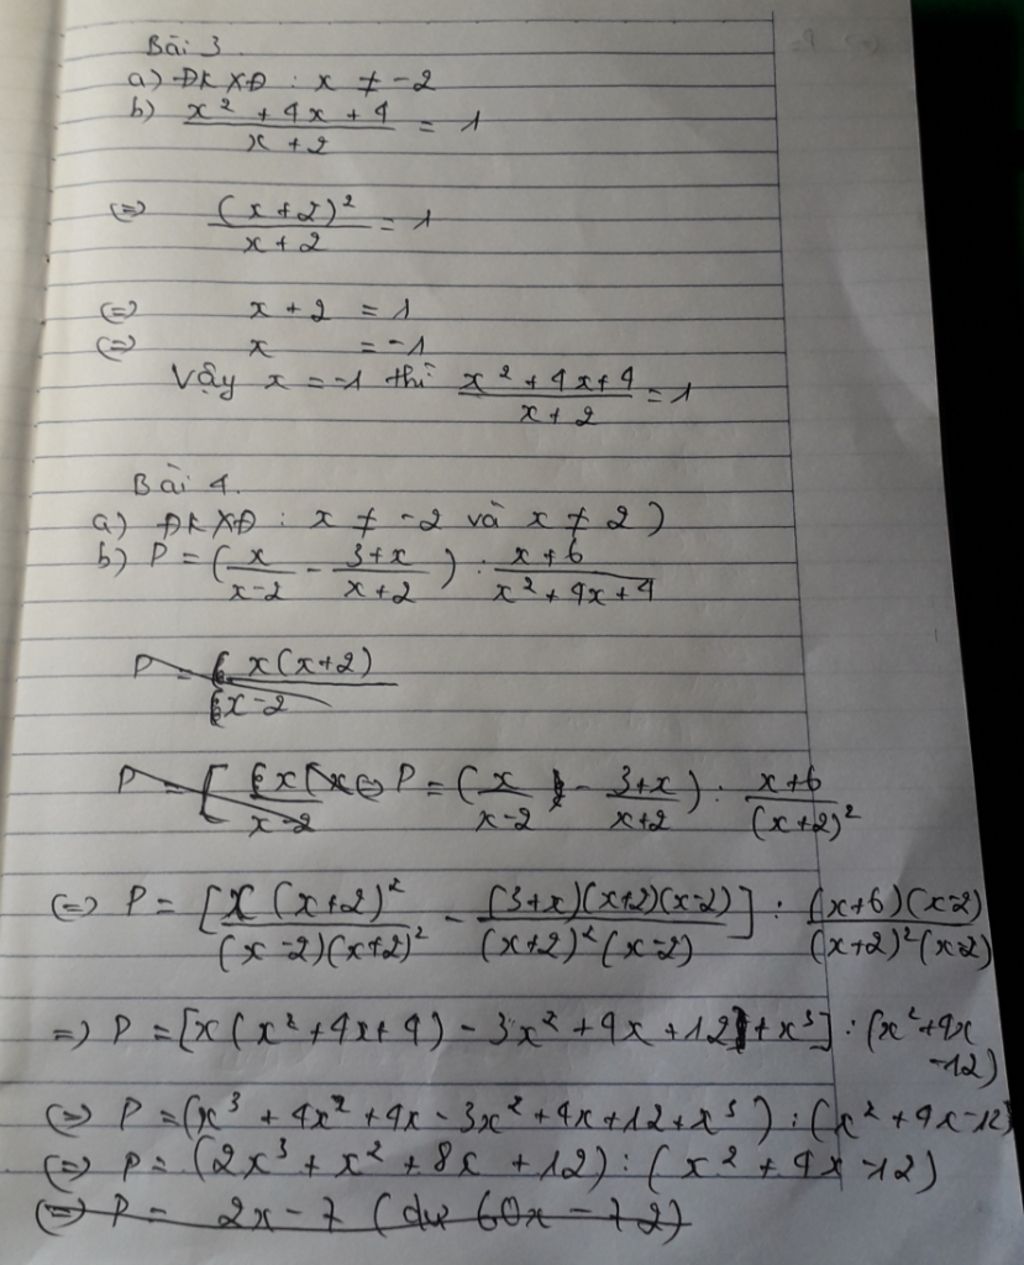 Bài 3
a) ĐKXĐ : x ≠ -2
b) (x² + 4x + 4)/(x + 2) = 1
⇔ (x + 2)²/(x + 2) = 1
⇔ x + 2 = 1
⇔ x = -1
Vậy x = -1 thì (x² + 4x + 4)/(x + 2) = 1
Bài 4.
a) ĐKXĐ : x ≠ -2 và x ≠ 2)
b) P = (x/(x-2) - (3+x)/(x+2)) : (x+6)/(x² + 4x + 4)
P = x(x+2)/(x-2)
⇔ P = (x/(x-2) - (3+x)/(x+2)) : (x+6)/(x+2)²
⇔ P = [x(x+2)²/((x-2)(x+2)²) - (3+x)(x+2)(x-2)/((x+2)²(x-2))] : (x+6)(x-2)/((x+2)²(x-2))
=> P = [x(x² + 4x + 4) - 3x² + 4x + 12 + x³] : (x² + 4x
-12)
⇔ P = (x³ + 4x² + 4x - 3x² + 4x + 12 + x³) : (x² + 4x - 12)
⇔ P = (2x³ + x² + 8x + 12) : (x² + 4x - 12)
⇔ P = 2x - 7 (dư 60x - 72)